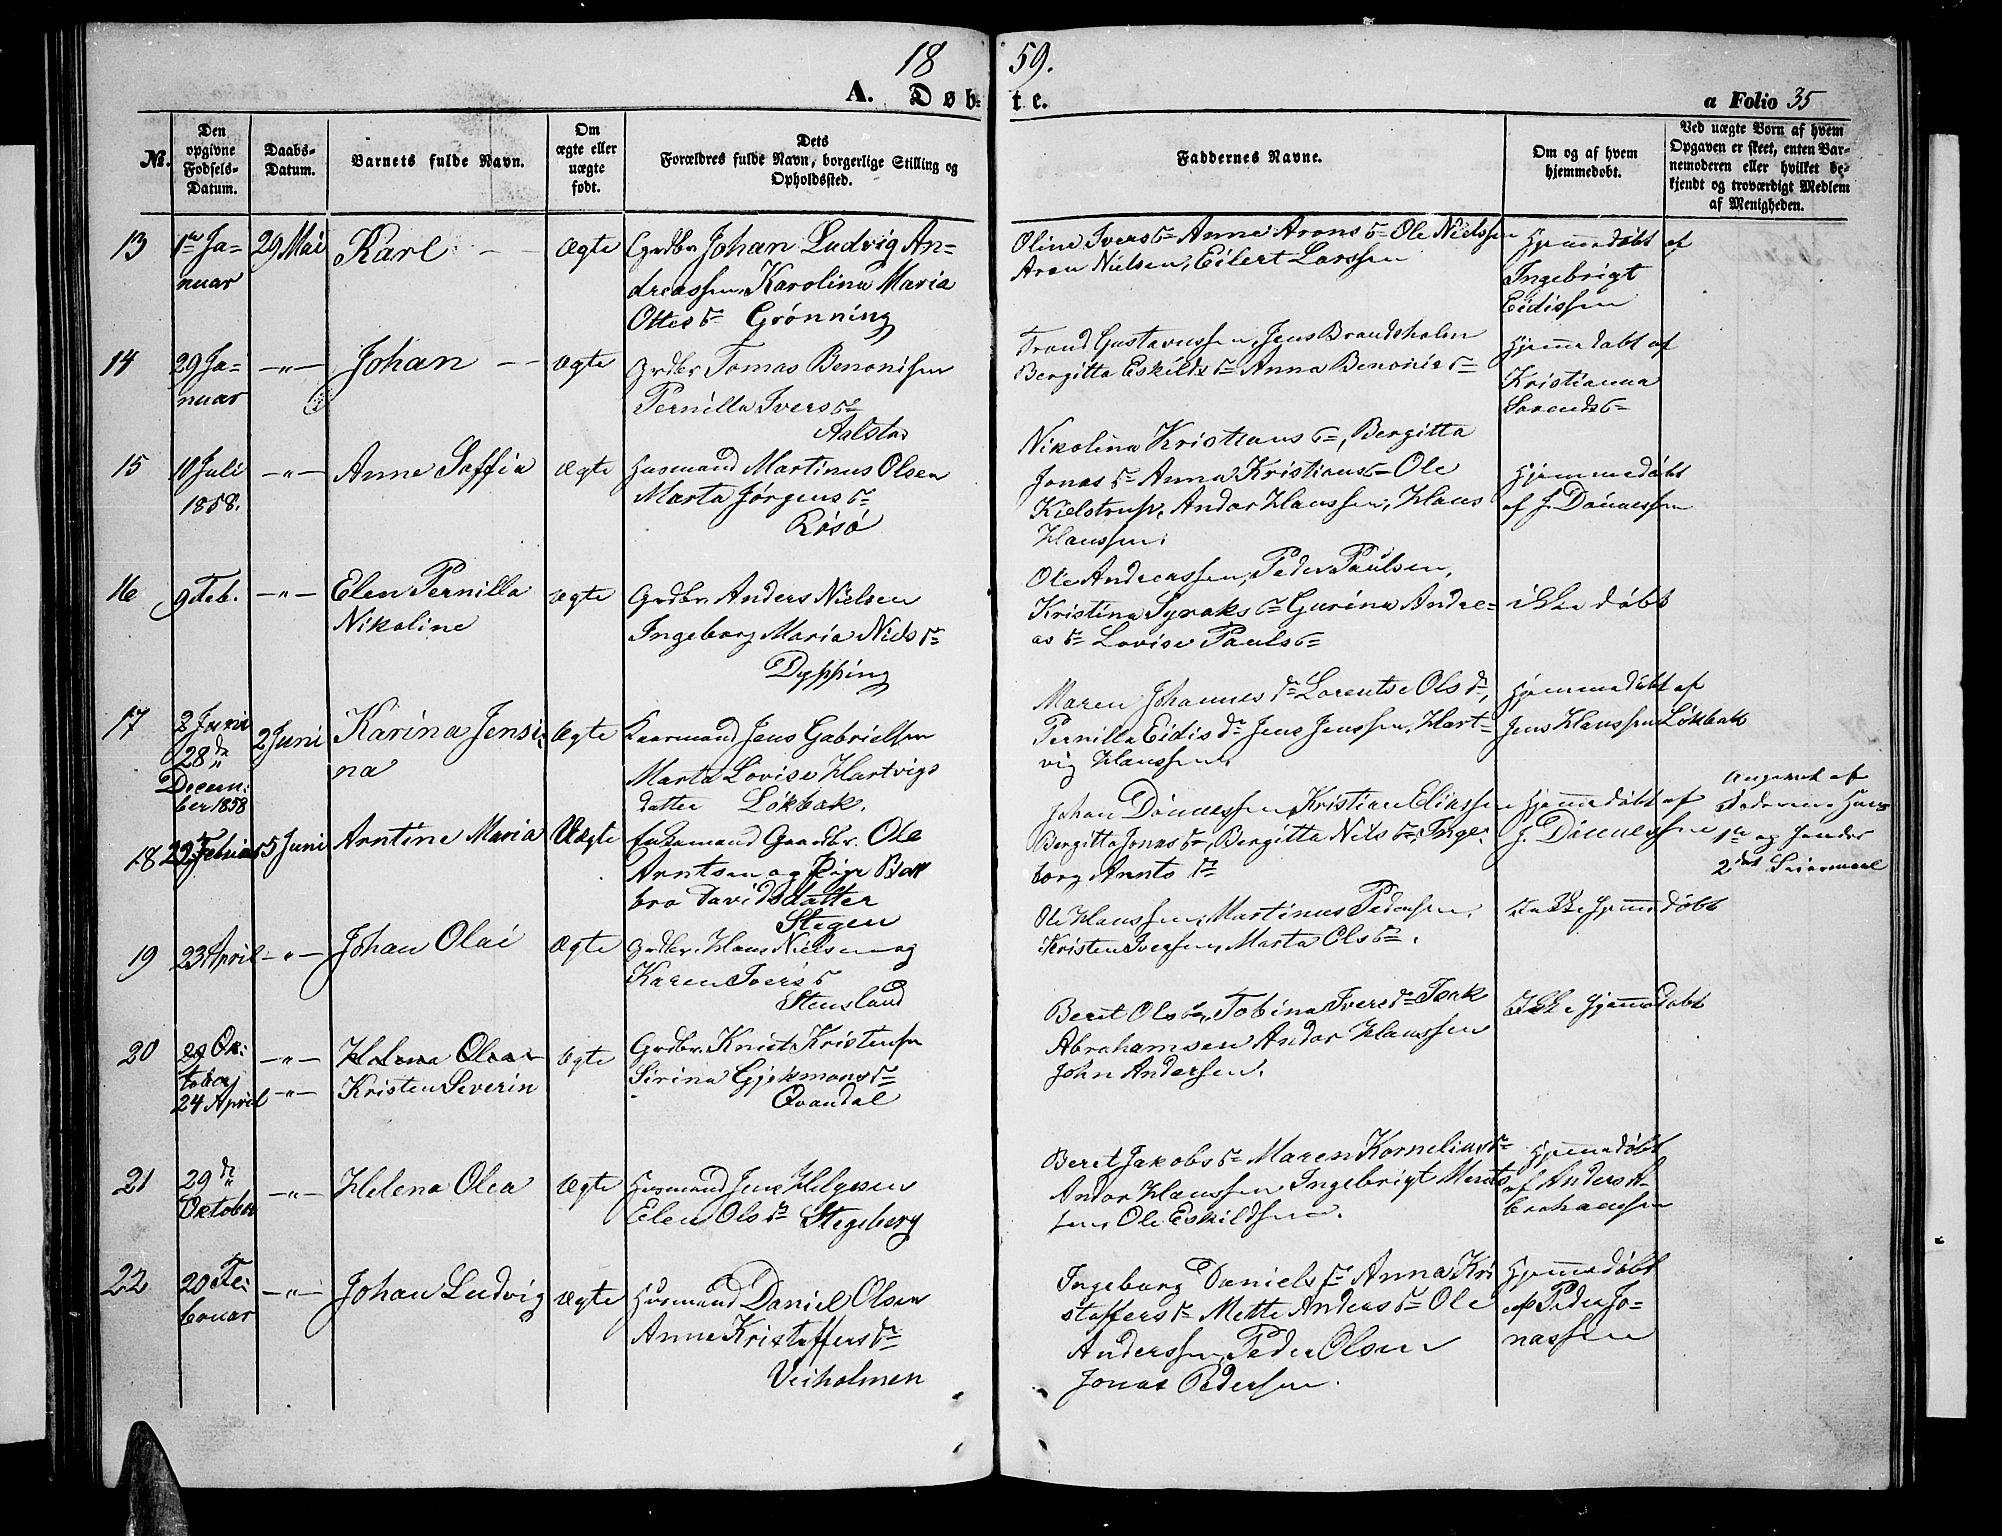 18 59.
A. Døb- te. a Folio 35
№.
Den opgivne Fødsels-Datum.
Daabs-Datum.
Barnets fulde Navn.
Om ægte eller uægte født.
Dets Forældres fulde Navn, borgerlige Stilling og Opholdssted.
Faddernes Navne.
Om og af hvem hjemmedøbt.
Ved uægte Børn af hvem Opgaven er skeet, enten Barnemoderen eller hvilket bekjendt og troværdigt Medlem af Menigheden.
13 1ste Ja- 29 Mai Karl Ægte Grdbr Johan Ludvig An-
nuar dreassen, Karolina Maria
Ottesd. Grönning
Oline Iversd. Anne Aronsd. Ole Nielssen
Aron Nielsen, Eilert Larssen
Hjemmedöbt af
Ingebrigt
Eidissen
14 29 Ja- -"- Johan Ægte Grdbr Tomas Benonisen
nuar Pernilla Iversd.
Aalstad
Trond Gustavussen, Jens Brandsholm
Bergitta Eskildsd. Anna Benonisd.
Hjemmedöbt af
Kristianna
Sorendsd.
15 10 Juli -"- Anne Soffia Ægte Husmand Martinus Olsen
1858. Marta Jörgensd.
Rösö
Nikolina Kristiansd., Bergitta
Jonasd. Anna Kristiansd. Ole
Kielstrup, Andor Hanssen, Hans
Hanssen.
Hjemmedöbt
af J. Dönnessen
16 9 Feb. -"- Elen Pernilla Ægte Grdbr. Anders Nielsen
Nikoline Ingeborg Maria Nielsd.
Dypping
Ole Andreassen, Peder Paulsen,
Kristina Syraksd. Gurina Andre-
asd. Lovise Paulsd.
ikke döbt
17 2 Juni 2 Juni Karina Jensi- Ægte Kaarmand Jens Gabrielsen
28de na Marta Lovise Hartvigs
Decem- datter Lökbak.
ber 1858
Maren Johannesdr. Lorentse Olsdr,
Pernilla Eidisdr. Jens Jenssen, Hart-
vig Hanssen.
Hjemmedöbt af
Jens Hanssen Lökbak
18 22 Februar 5 Juni Arntine Maria Uægte Enkemand Gaardbr. Ole
Arntsen og Pige
bra Davidsdatter
Stegen
Johan Dönnessen, Kristian Eliassen
Bergitta Jonasd., Bergitta Nilsd. Inge-
borg Arntsd.
Hjemmedöbt af
J. Dönnessen
Angivet af
Faderen. Hans
1ste og hendes
2det Leiermaal
19 23 April -"- Johan Olai Ægte Grdbr. Hans Nielsen og
Karen Iversd.
Stensland
Ole Hanssen, Martinus Pedersen,
Kristen Iversen, Marta Olsd.
Ikke hjemmedöbt
20 29 Ok- -"- Helena Olea Ægte Grdbr. Knut Kristensen
tober Sirina Gjermonsd.
24 April -"- Kristen Severin Qvandal
Beret Olsd., Tobina Iversd. Isak
Abrahamsen Andor Hanssen
John Andersen.
Ikke hjemmedöbt
21 29de -"- Helena Olea Ægte Husmand Jens Helgesen
Oktober Elen Olsd. Stegeberg
Beret Jakobsd. Maren Korneliusd.
Andor Hanssen Ingebrigt Ments-
sen, Ole Eskildsen.
Hjemmedöbt
af Anders A-
brahamsen
22 20 Fe- -"- Johan Ludvig Ægte Husmand Daniel Olsen
bruar Anne Kristoffersdr.
Veiholmen
Ingeborg Danielsd. Anna Kri-
stoffersd. Mette Andersd. Ole
Anderssen, Peder Olsen
Jonas Pedersen.
Hjemmedöbt
af Peder Jo-
nassen